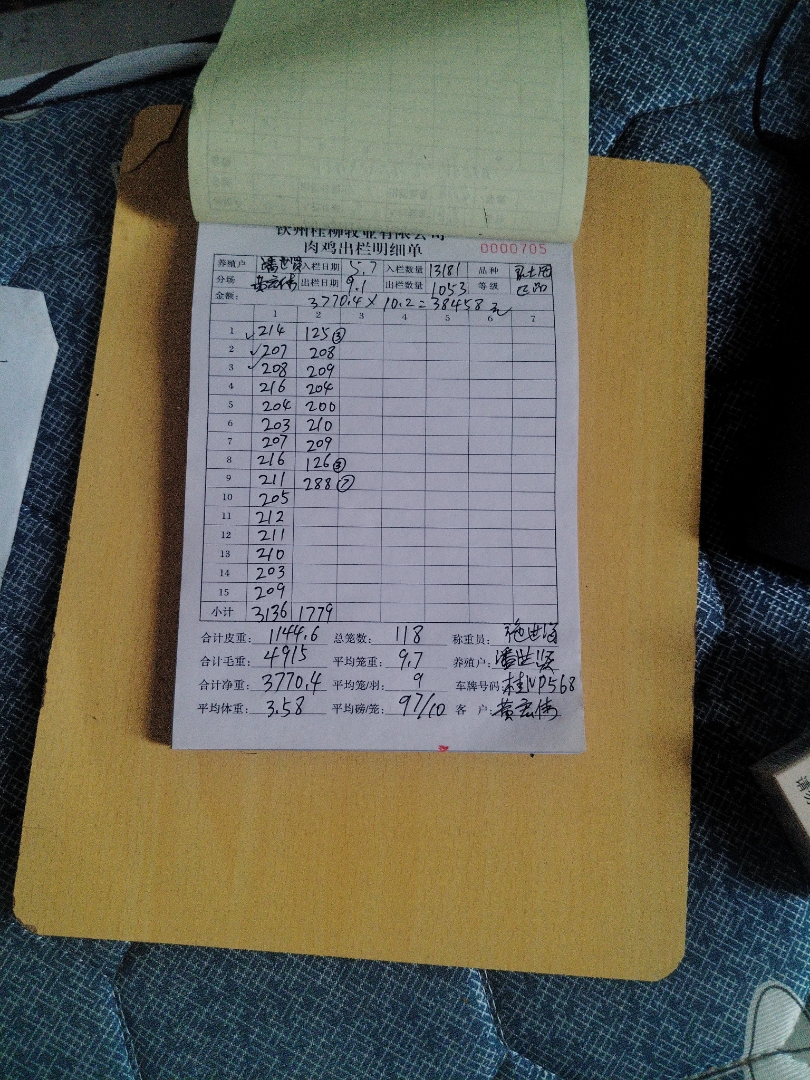 钦州桂柳牧业有限公司
肉鸡出栏明细单 0000705
养殖户 潘世贤 入栏日期 5.7 入栏数量 13181 品种
分场 黄宏伟 出栏日期 9.1 出栏数量 1053 等级
金额: 3770.4×10.2=38458元
1 2 3 4 5 6 7
1 ✓214 125③
2 ✓207 208
3 ✓208 209
4 216 204
5 204 200
6 203 210
7 207 209
8 216 126③
9 211 288⑦
10 205
11 212
12 211
13 210
14 203
15 209
小计 3136 1779
合计皮重: 1144.6 总笼数: 118 称重员:
合计毛重: 4915 平均笼重: 9.7 养殖户: 潘世贤
合计净重: 3770.4 平均笼/羽: 9 车牌号码: 桂NP568
平均体重: 3.58 平均磅/笼: 97/10 客 户: 黄宏伟
请勿